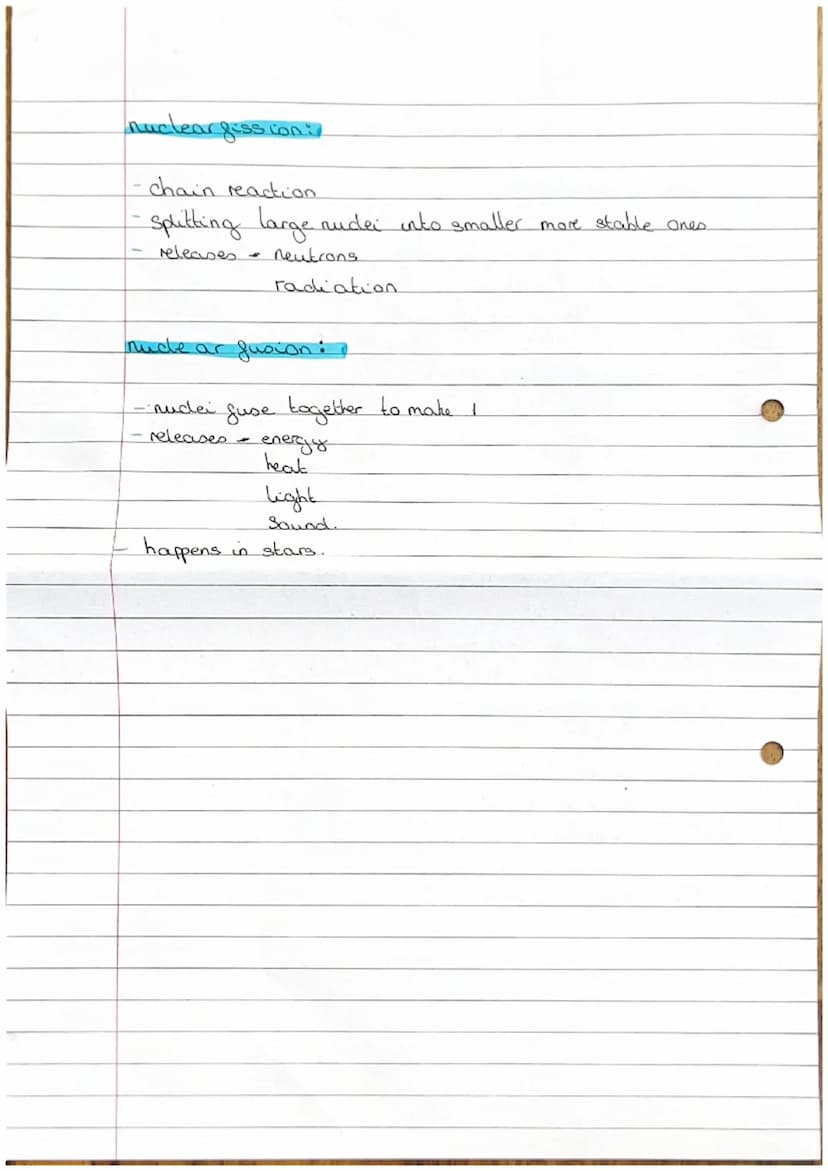 nuclear fission:
- chain reaction
- splitting large nuclei into smaller more stable ones
- releases - neutrons
radiation
nuclear fusion:
- nuclei fuse together to make 1
- releases - energy
heat
light
sound.
- happens in stars.